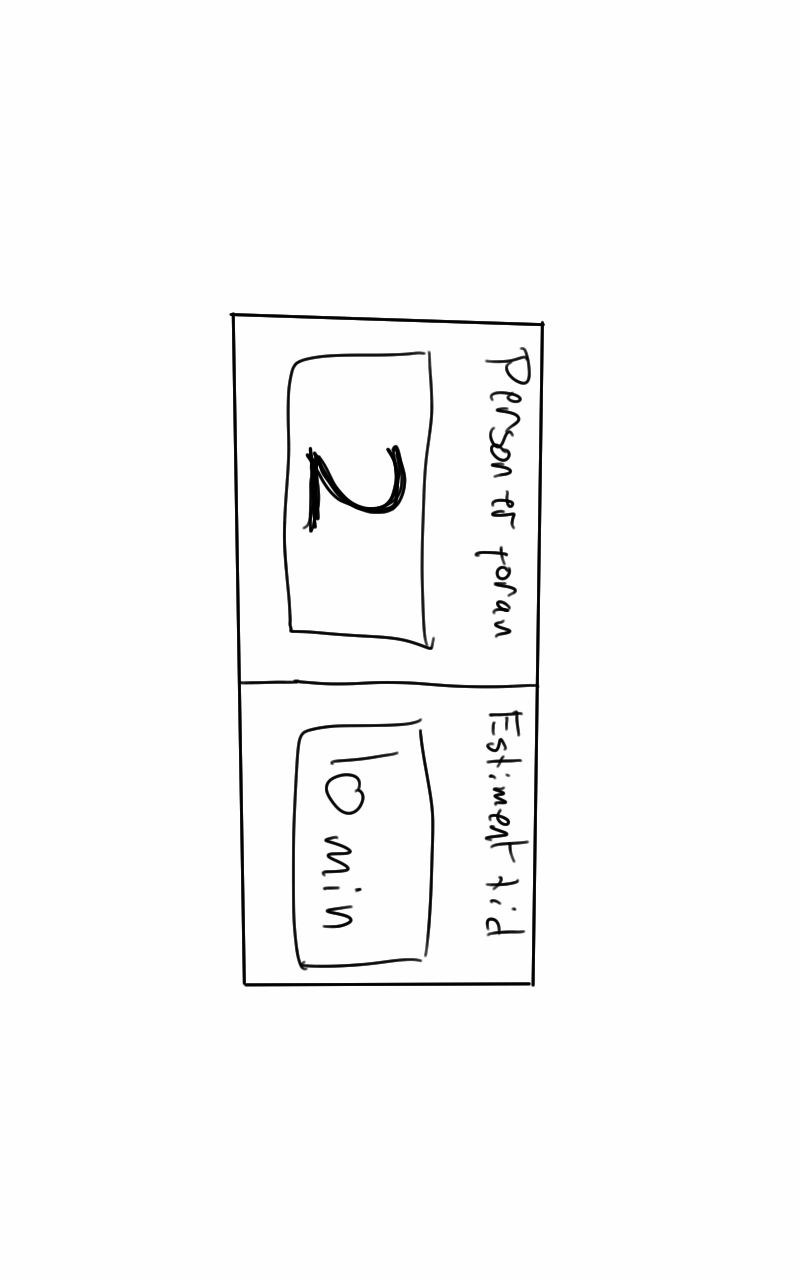 Personer foran
2
Estiment tid
10 min